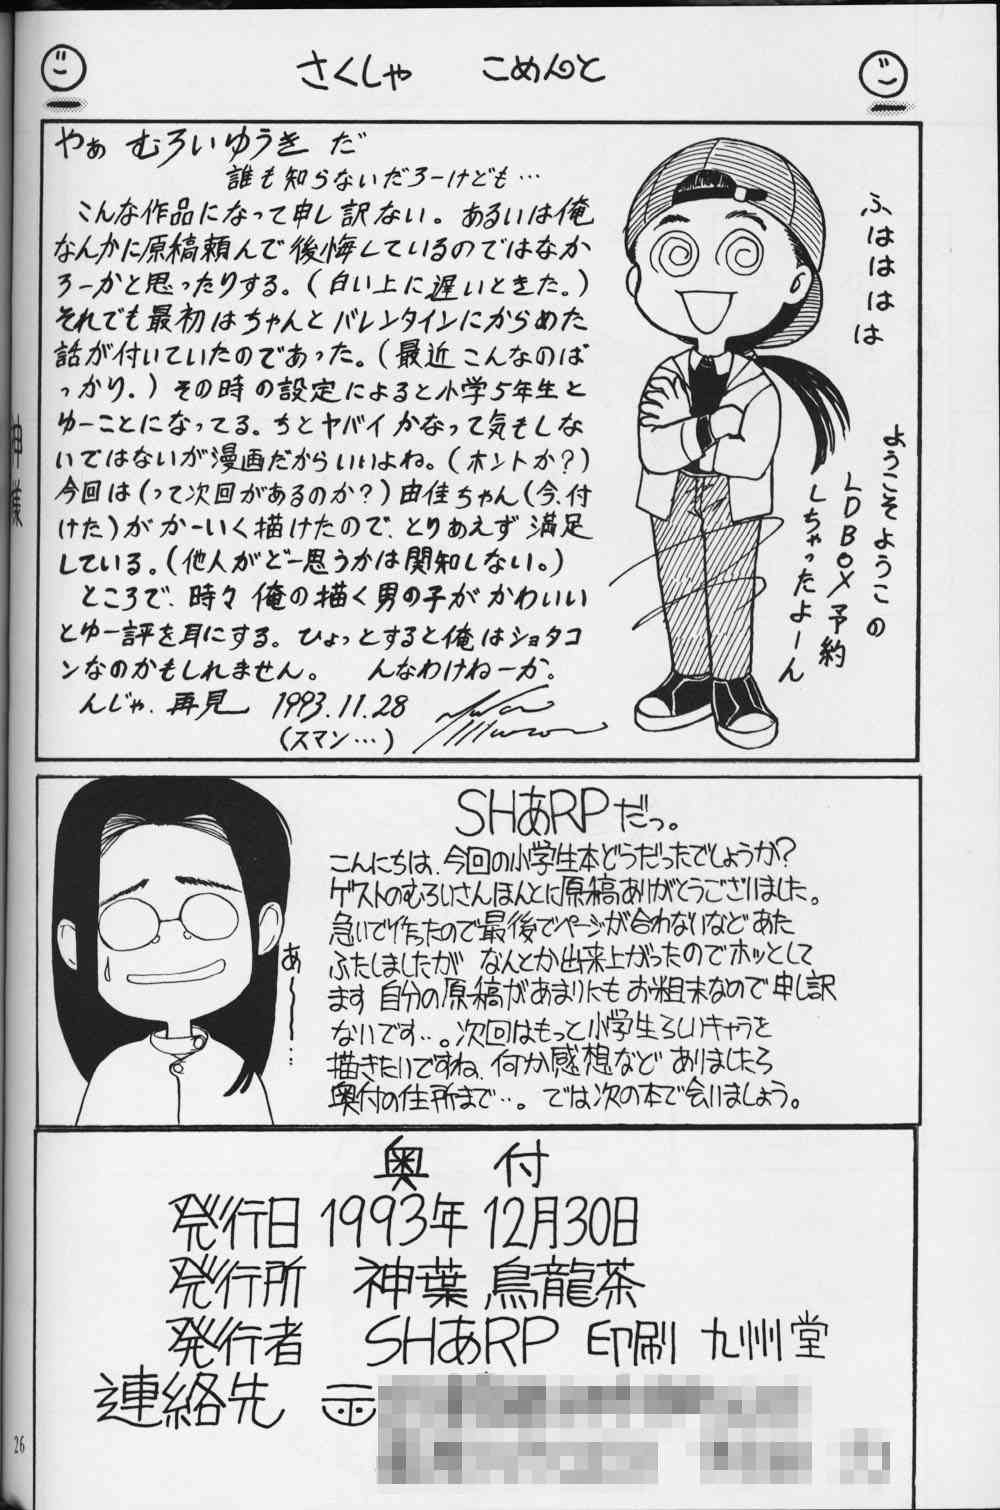 さくしゃ　こめんと
やぁ むろいゆうき だ
誰も知らないだろーけども…
こんな作品になって申し訳ない。あるいは俺
なんかに原稿頼んで後悔しているのではなか
ろーかと思ったりする。(白い上に遅いときた。)
それでも最初はちゃんとバレンタインにからめた
話が付いていたのであった。(最近こんなのば
っかり.)その時の設定によると小学5年生と
ゆーことになってる。ちとヤバイかなって気もしな
いではないが漫画だからいいよね。(ホントか?)
今回は(って次回があるのか?)由佳ちゃん(今、付
けた)がかーいく描けたので、とりあえず満足
している。(他人がどー思うかは関知しない。)
ところで、時々俺の描く男の子がかわいい
とゆー評を耳にする。ひょっとすると俺はショタコ
ンなのかもしれません。　んなわけねーか.
んじゃ.再見 1993.11.28
(スマン…)
ふはははは
ようこそようこの
LDBOX予約
しちゃったよーん
SHあRPだっ。
こんにちは、今回の小学生本どうだったでしょうか?
ゲストのむろいさんほんとに原稿ありがとうございました。
急いで作ったので最後でページが合わないなどあた
ふたしましたが なんとか出来上がったのでホッとして
ます 自分の原稿があまりにも お粗末なので申し訳
ないです…。次回はもっと小学生らしいキャラを
描きたいですね、何か感想など ありましたら
奥付の住所まで…。では次の本で会いましょう。
あ〜〜…
奥付
発行日 1993年 12月30日
発行所　神葉 烏龍茶
発行者　SHあRP 印刷 九州堂
連絡先 〒
26